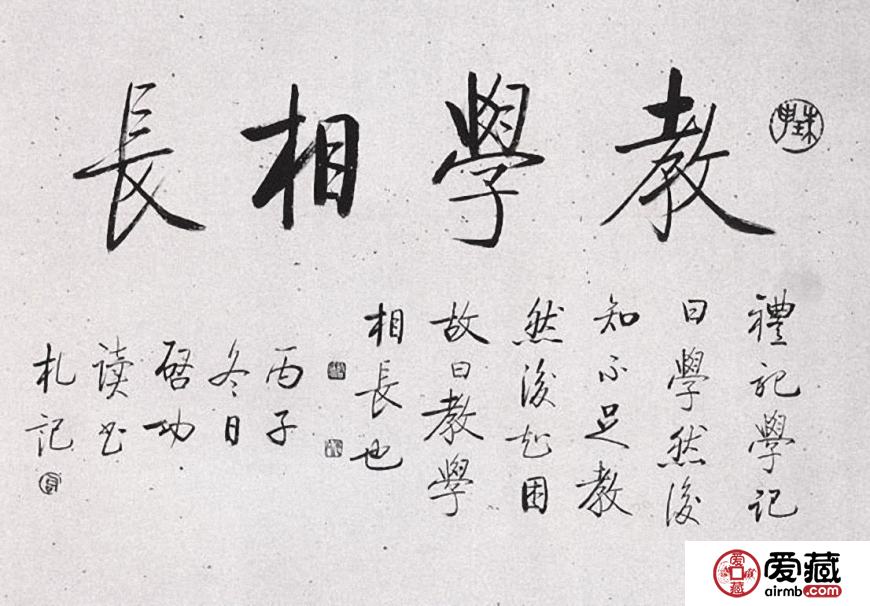 教學相長
珠申
禮記學記
曰學然後
知不足教
然後知困
故曰教學
相長也
丙子
冬日
啓功
读书
札記
爱藏
airmb.com